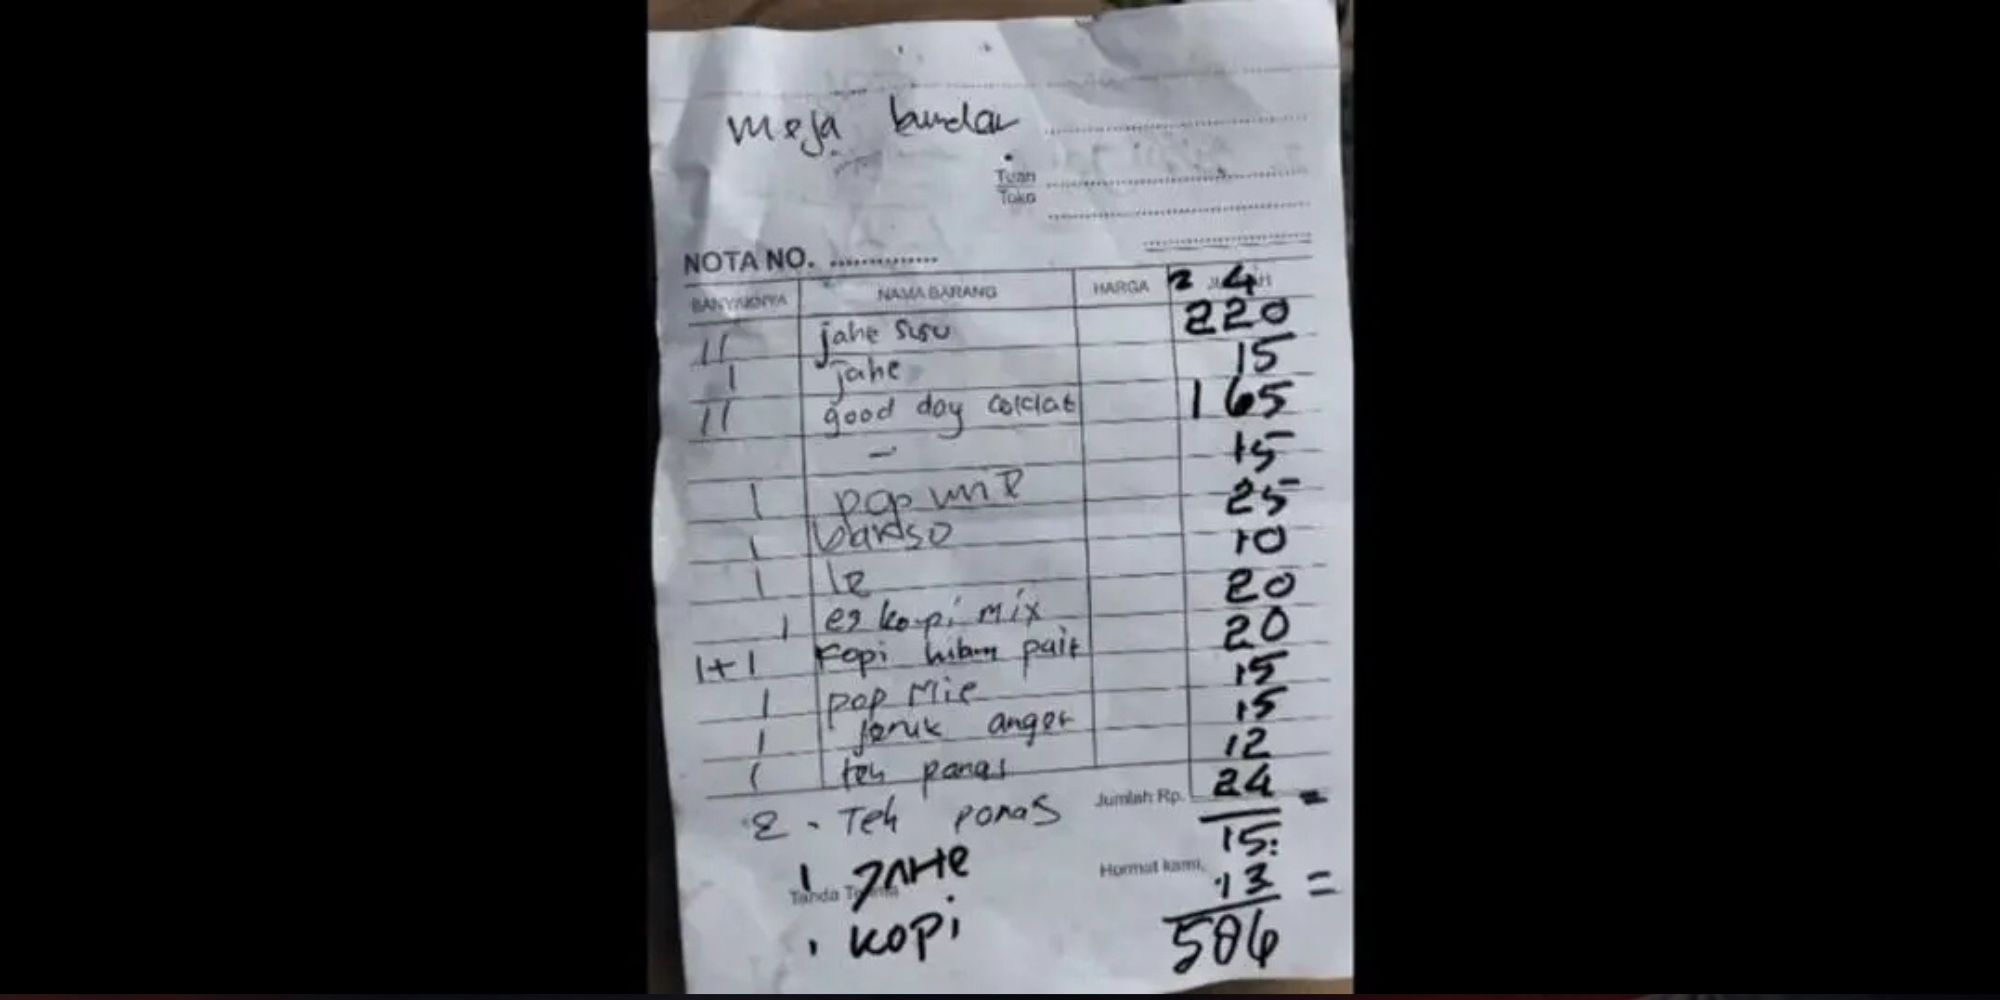 meja bundar
Tuan
Toko
NOTA NO. ..............
BANYAKNYA NAMA BARANG HARGA 2 4
11 jahe susu 220
1 jahe 15
11 good day coklat 165
- 15
1 pop mie 25
1 bakso 10
1 le 20
1 es kopi mix 20
1+1 Kopi hitam pait 15
1 pop Mie 15
1 jeruk anget 12
1 teh panas Jumlah Rp. 24 =
2 - Teh ponas 15:
1 JAHE Hormat kami, 13 =
Tanda Terima
1 KOPI 586